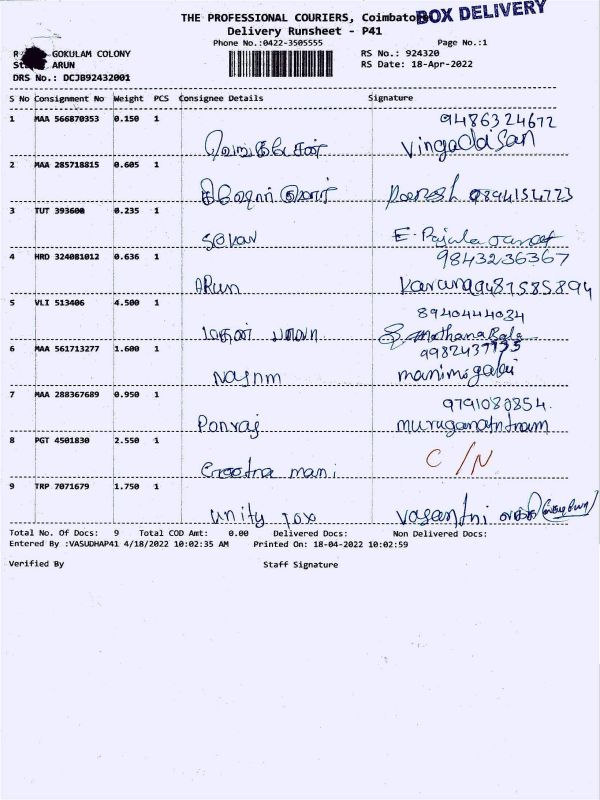 THE PROFESSIONAL COURIERS, Coimbato
BOX DELIVERY
Delivery Runsheet - P41
Phone No.:0422-3505555 Page No.:1
RS No.: 924320
GOKULAM COLONY RS Date: 18-Apr-2022
ARUN
DRS No.: DCJB92432001
S No Consignment No Weight PCS Consignee Details Signature
1 MAA 566870353 0.150 1 9486324672
Vingadasan
2 MAA 285718815 0.605 1
9894154723
3 TUT 393600 0.235 1
E.
4 HRD 324081012 0.636 1 9843236367
ARun Karuna 9487585894
5 VLI 513406 4.500 1 8940444034
மதன் பாலா MothanaBala
6 MAA 561713277 1.600 1
manimegalai
7 MAA 288367689 0.950 1 9791080854.
Ponraj muruganathnam
8 PGT 4501830 2.550 1 C/N
mani
9 TRP 7071679 1.750 1
unity Tax Vasanthi
Total No. Of Docs: 9 Total COD Amt: 0.00 Delivered Docs: Non Delivered Docs:
Entered By :VASUDHAP41 4/18/2022 10:02:35 AM Printed On: 18-04-2022 10:02:59
Verified By Staff Signature